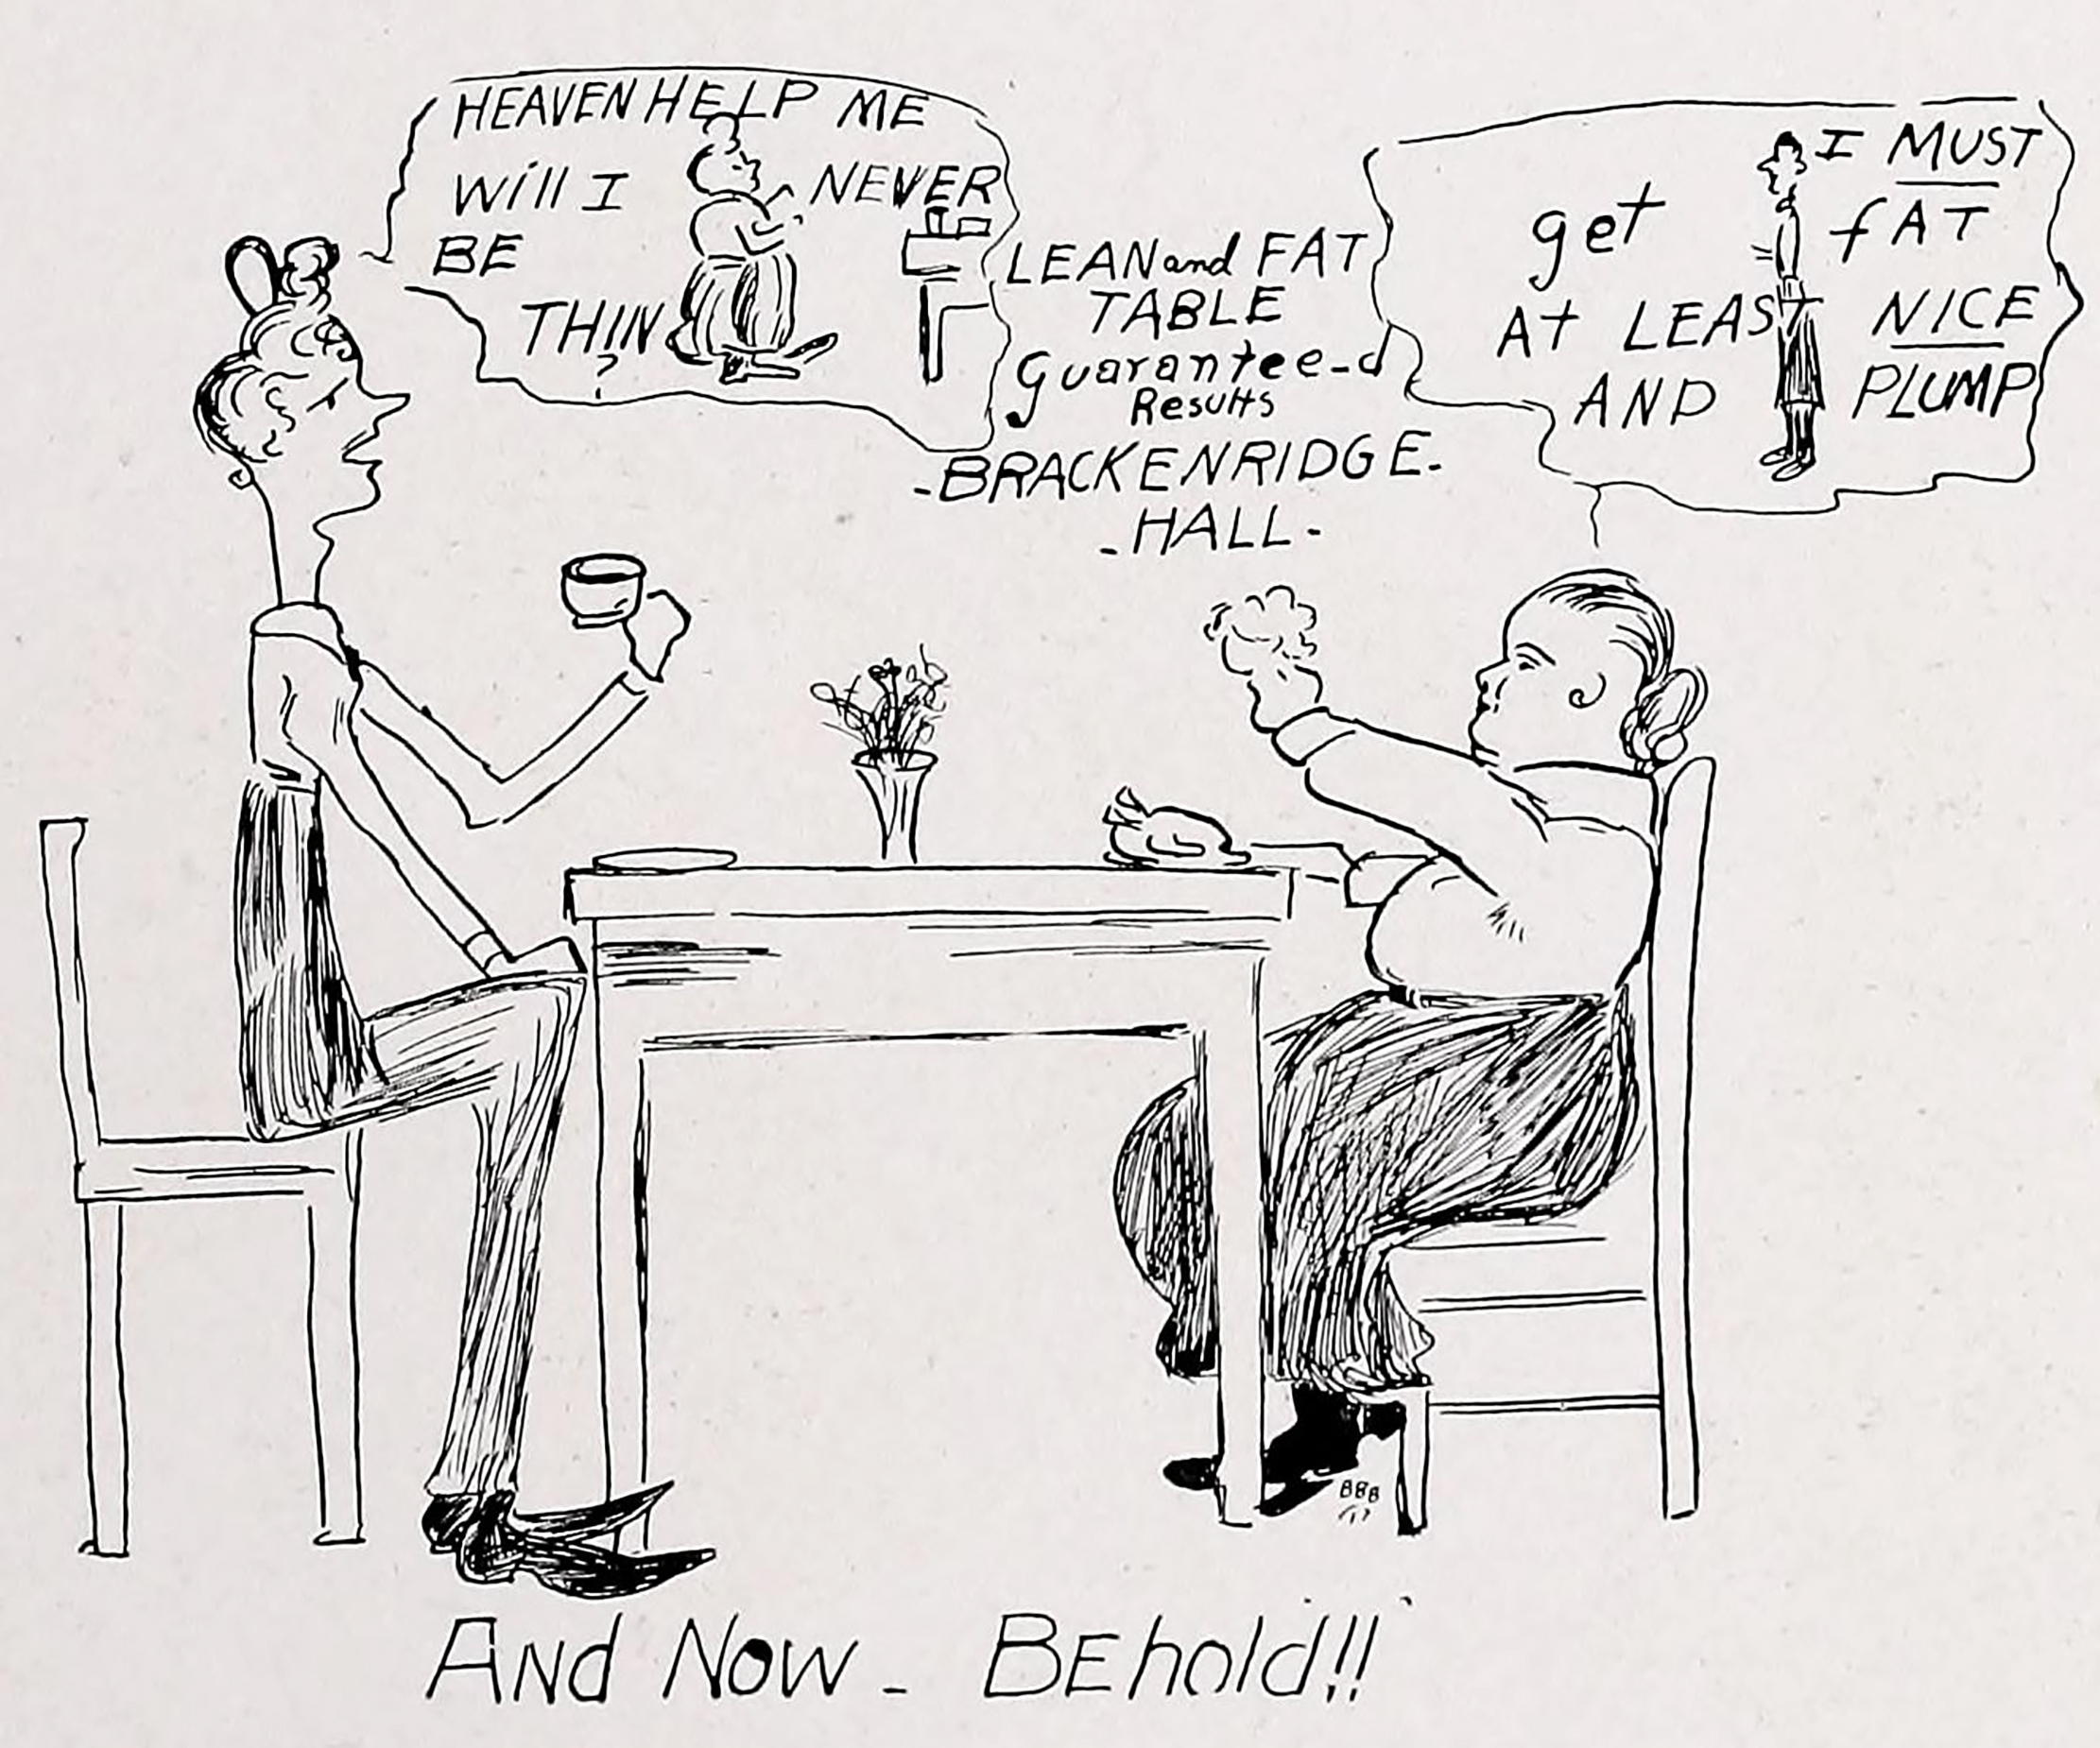 HEAVEN HELP ME
Will I NEVER
BE
THIN
?
LEAN and FAT
TABLE
Guarantee-d
Results
-BRACKENRIDGE-
-HALL-
I MUST
get fAT
At LEAST NICE
AND PLUMP
BBB
'17
AND NOW - BEhold!!